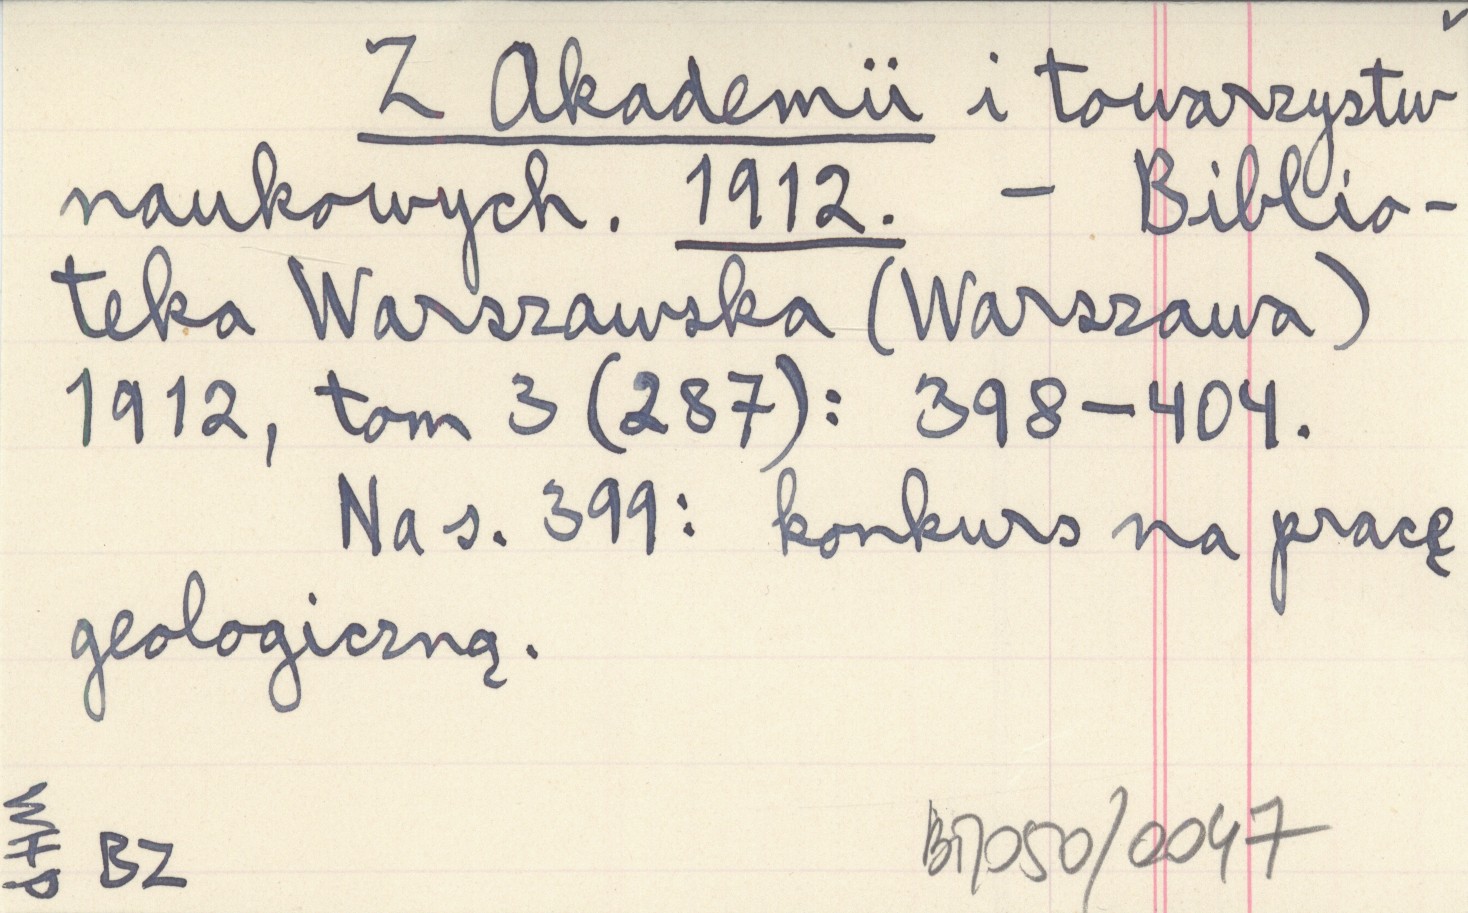 Z Akademii i towarzystw
naukowych. 1912. – Biblio-
teka Warszawska (Warszawa)
1912, tom 3 (287): 398–404.
Na s. 399: konkurs na pracę
geologiczną.
BZ
050/0047